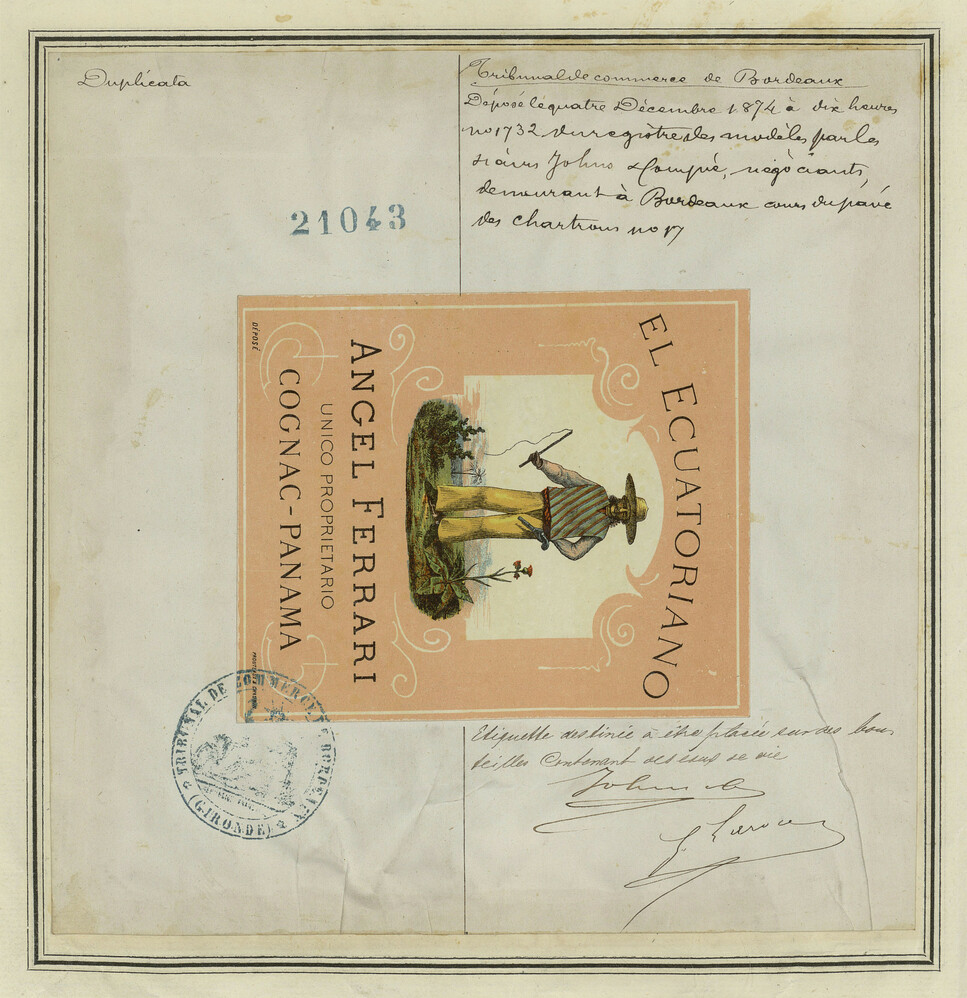 Duplicata
Tribunal de commerce de Bordeaux
Déposé le quatre Décembre 1874 à dix heures
no 1732 du registre des modèles par les
sieurs Johns & Compie, négociants,
demeurant à Bordeaux cours du pavé
des chartrons no 17
21043
EL ECUATORIANO
ANGEL FERRARI
UNICO PROPRIETARIO
COGNAC-PANAMA
DÉPOSÉ
TRIBUNAL DE COMMERCE DE BORDEAUX
(GIRONDE)
Etiquette destinée à être placée sur des bou
teilles contenant des eaux de vie